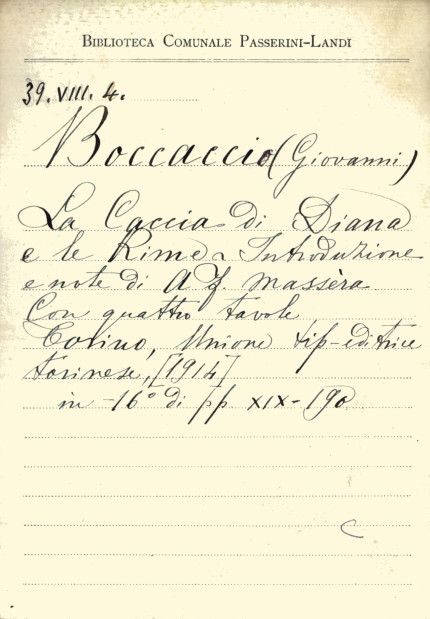 BIBLIOTECA COMUNALE PASSERINI-LANDI
39. VIII. 4.
Boccaccio (Giovanni)
La Caccia di Diana
e le Rime - Introduzione
e note di A F. Massèra
Con quattro tavole
Torino, Unione tip-editrice
torinese, [1914]
in -16° di pp XIX-190
C